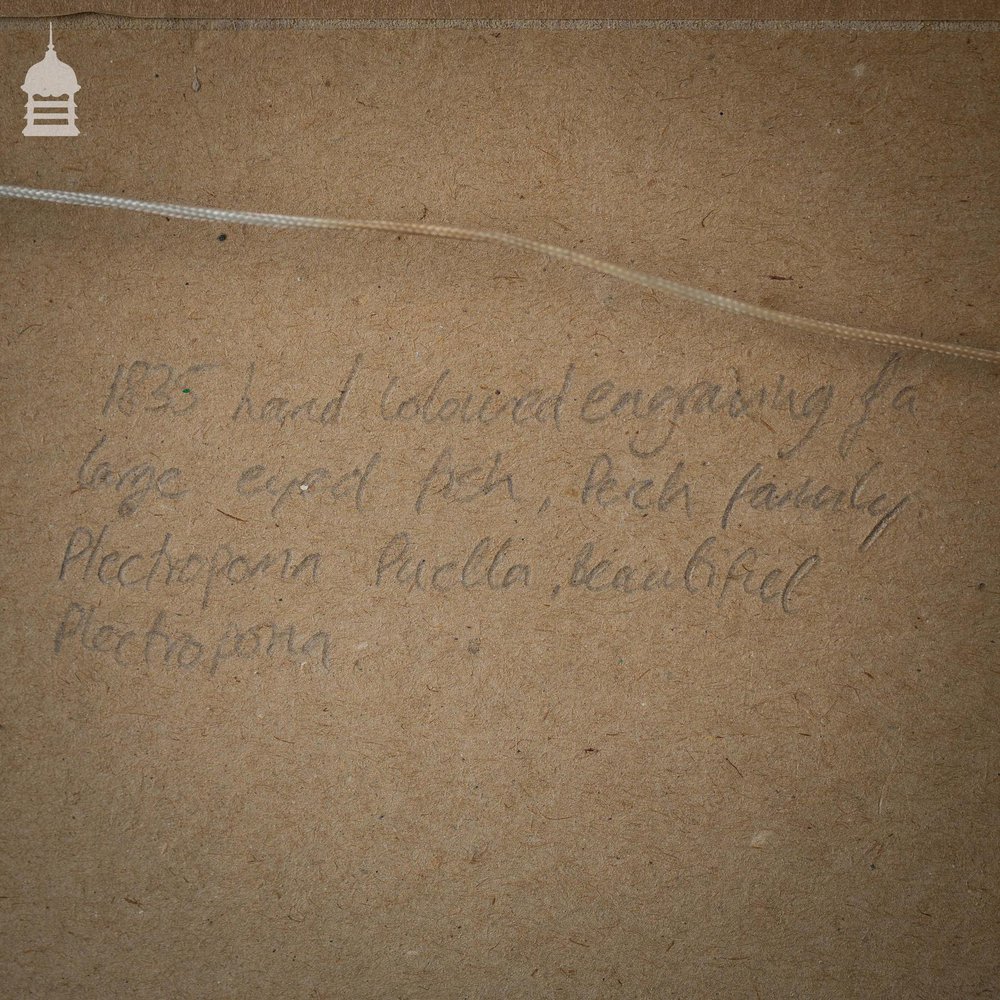 1835 hand coloured engraving of a
large eyed fish, Perch family.
Plectropoma Puella, beautiful
Plectropoma.